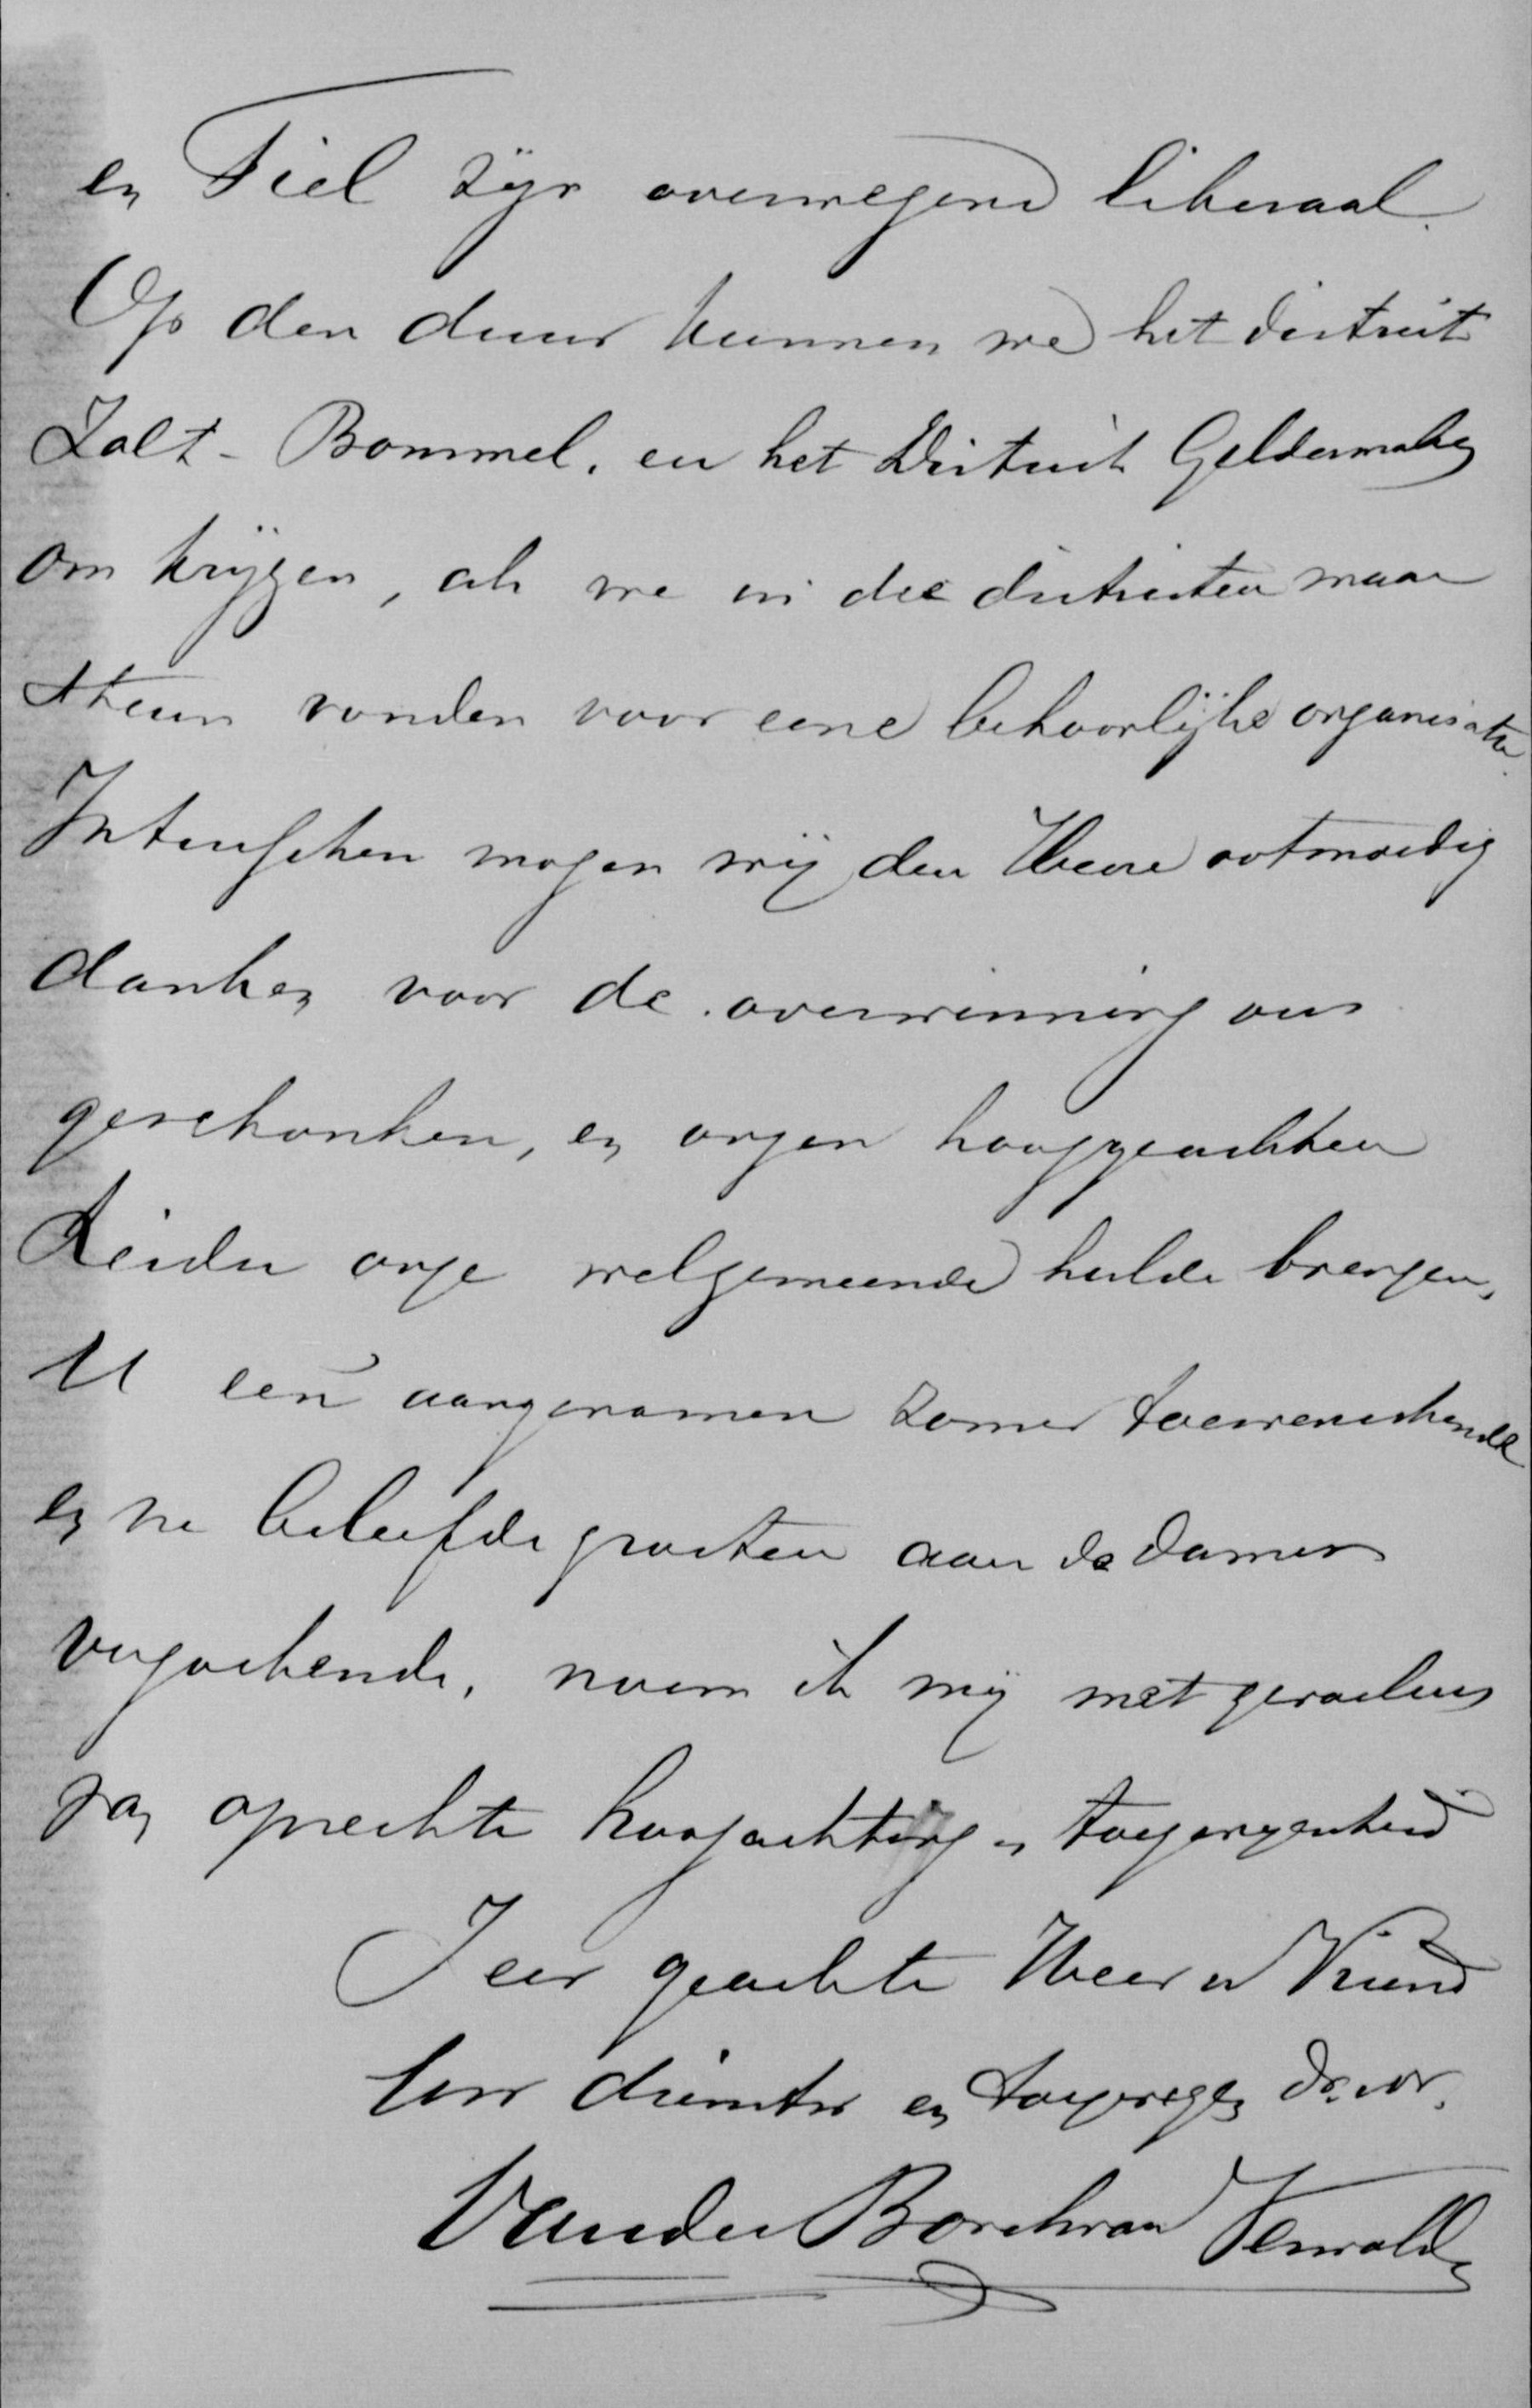 en Tiel zijn overwegend liberaal.
Op den duur kunnen we het district
Zalt-Bommel. en het District Geldermalsen
om krijgen, als we in die districten maar
steun vonden voor eene behoorlijke organisatie.
Intusschen mogen wij den Heere ootmoedig
danken voor de overwinning ons
geschonken, en onzen hooggeachten
Leider onze welgemeende hulde brengen.
U een aangenamen zomer toewenschende
en na beleefde groeten aan de dames
verzoekende, noem ik mij met gevoelens
van oprechte hoogachting en toegenegenheid
Zeer geachte Heer en Vriend
Uw dienstw en toegenegen dr. vr.
Van der Borch van Verwolde